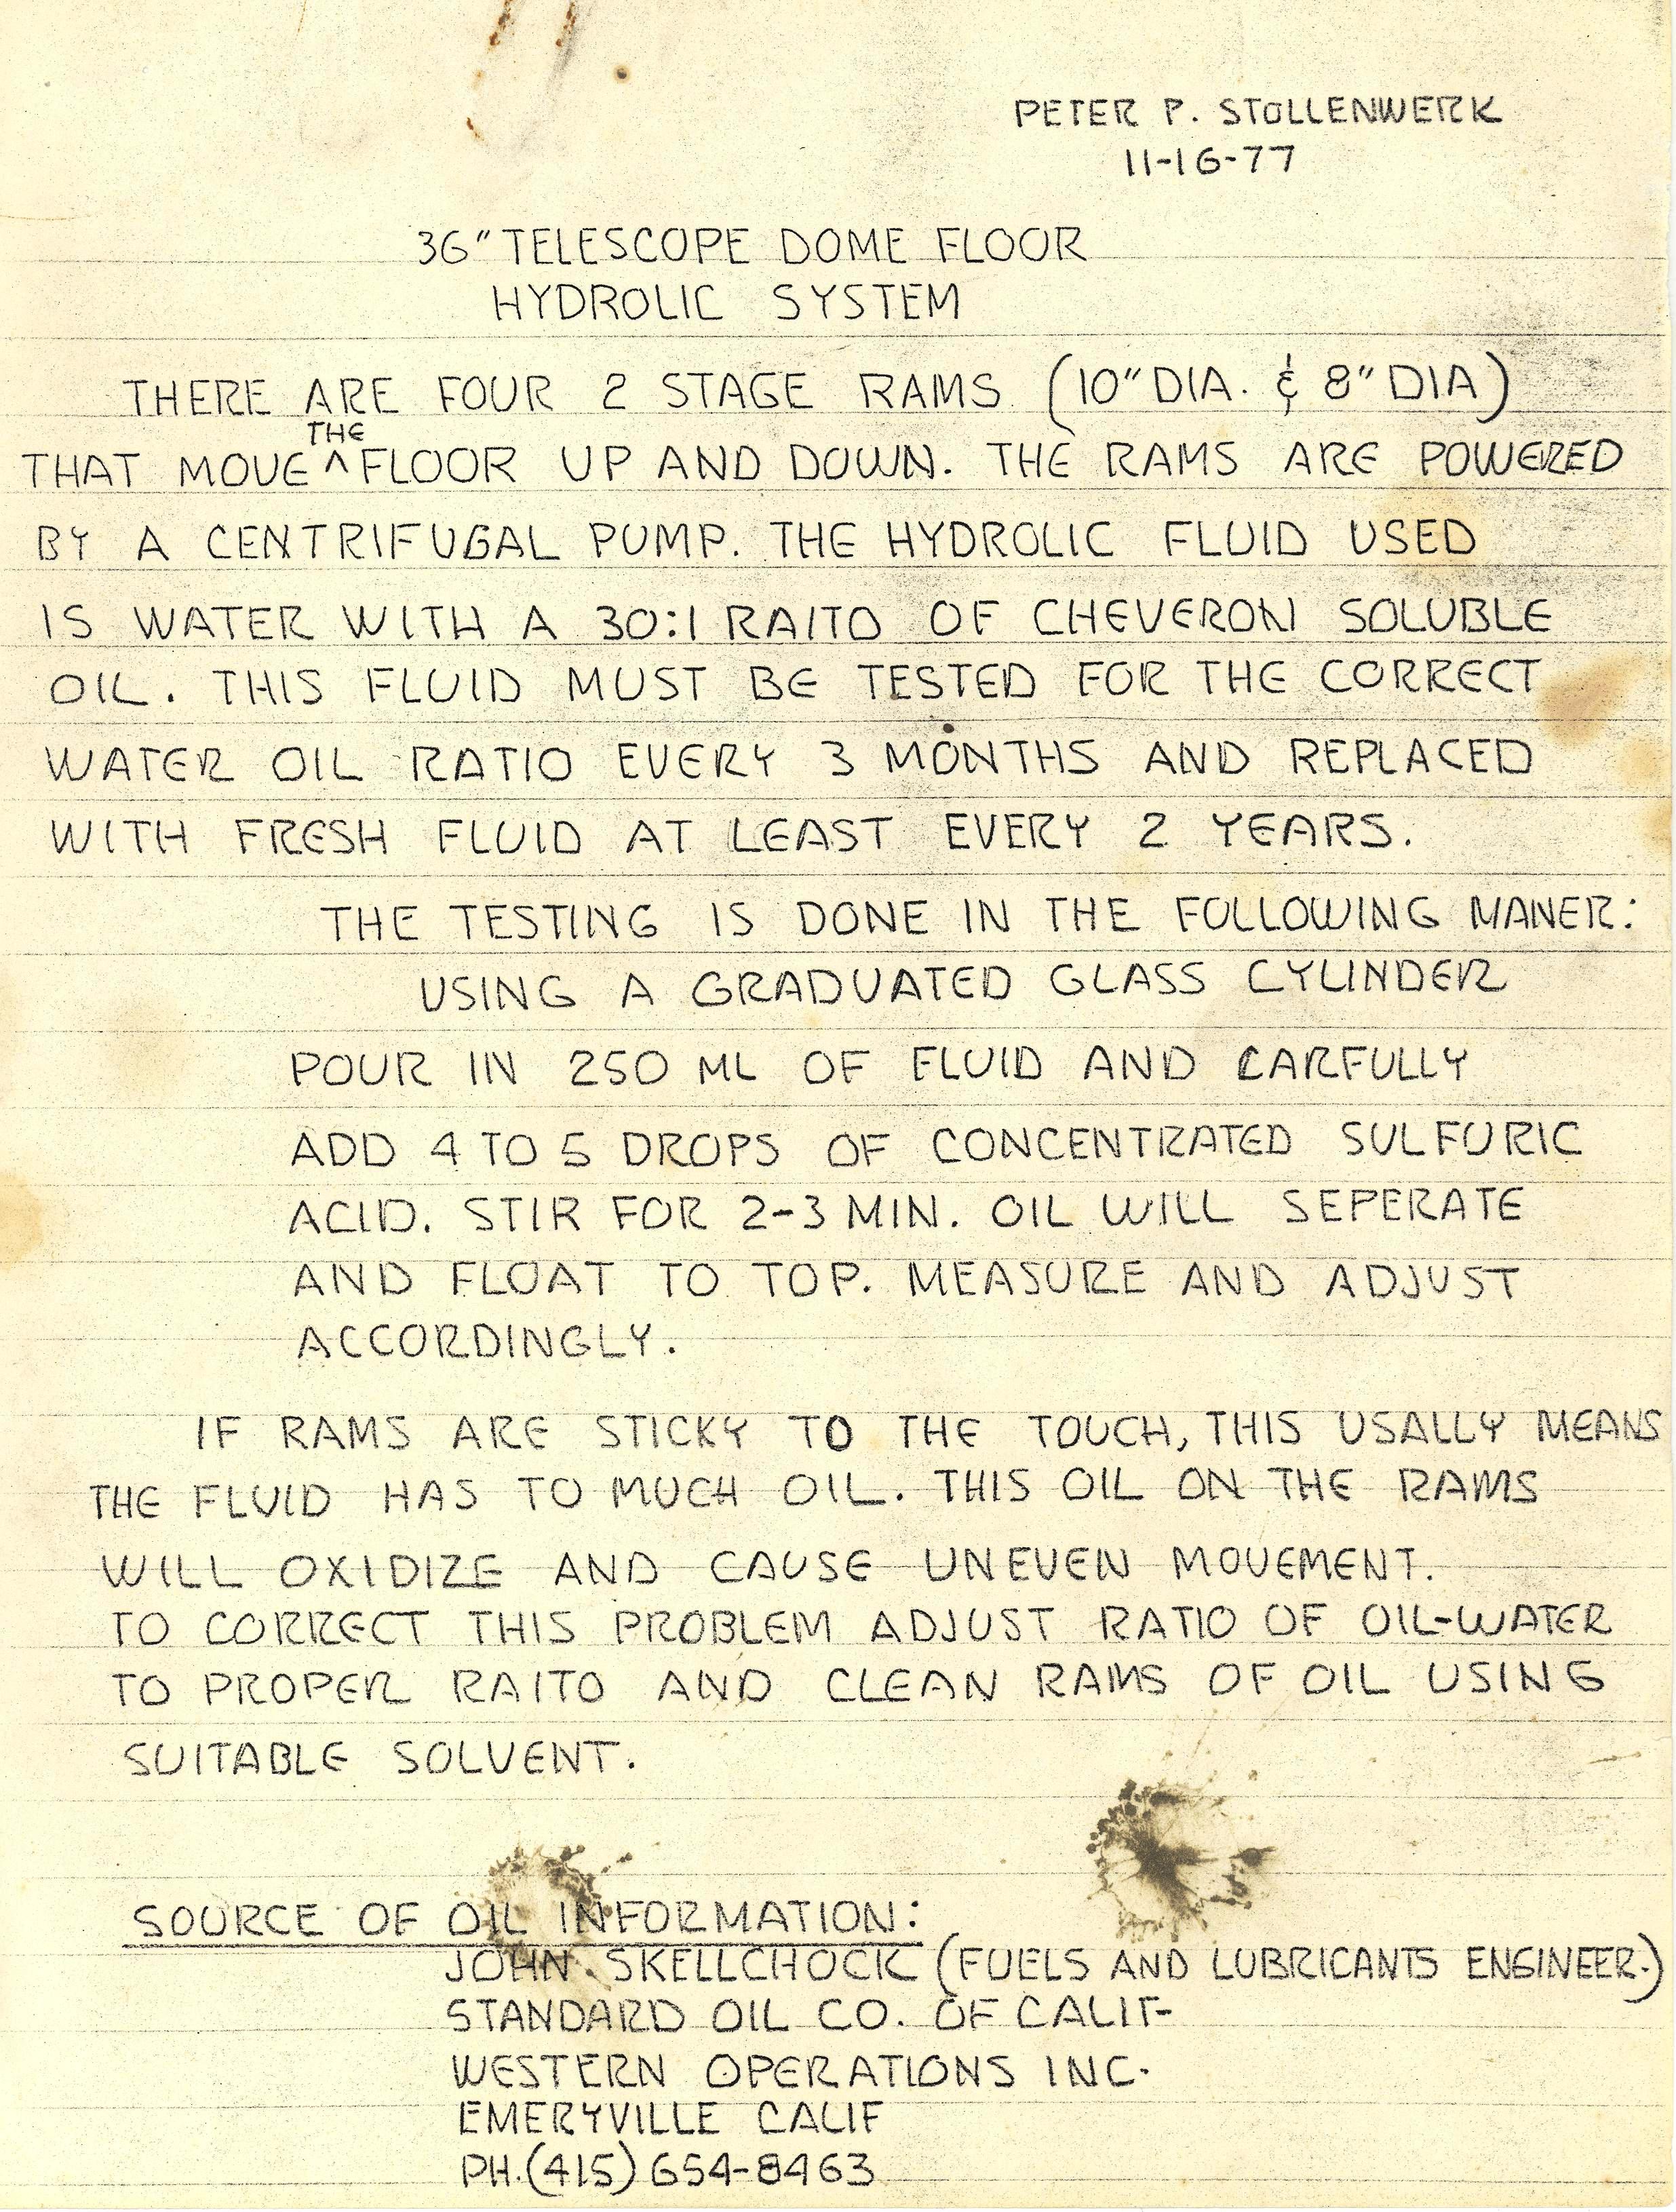 PETER P. STOLLENWERK
11-16-77
36" TELESCOPE DOME FLOOR
HYDROLIC SYSTEM
THERE ARE FOUR 2 STAGE RAMS (10" DIA. & 8" DIA)
THE
THAT MOVE ^ FLOOR UP AND DOWN. THE RAMS ARE POWERED
BY A CENTRIFUGAL PUMP. THE HYDROLIC FLUID USED
IS WATER WITH A 30:1 RAITO OF CHEVERON SOLUBLE
OIL. THIS FLUID MUST BE TESTED FOR THE CORRECT
WATER OIL RATIO EVERY 3 MONTHS AND REPLACED
WITH FRESH FLUID AT LEAST EVERY 2 YEARS.
THE TESTING IS DONE IN THE FOLLOWING MANER:
USING A GRADUATED GLASS CYLINDER
POUR IN 250 ML OF FLUID AND CARFULLY
ADD 4 TO 5 DROPS OF CONCENTRATED SULFURIC
ACID. STIR FOR 2-3 MIN. OIL WILL SEPERATE
AND FLOAT TO TOP. MEASURE AND ADJUST
ACCORDINGLY.
IF RAMS ARE STICKY TO THE TOUCH, THIS USALLY MEANS
THE FLUID HAS TO MUCH OIL. THIS OIL ON THE RAMS
WILL OXIDIZE AND CAUSE UNEVEN MOVEMENT.
TO CORRECT THIS PROBLEM ADJUST RATIO OF OIL-WATER
TO PROPER RAITO AND CLEAN RAMS OF OIL USING
SUITABLE SOLVENT.
SOURCE OF OIL INFORMATION:
JOHN SKELLCHOCK (FUELS AND LUBRICANTS ENGINEER.)
STANDARD OIL CO. OF CALIF
WESTERN OPERATIONS INC.
EMERYVILLE CALIF
PH.(415) 654-8463